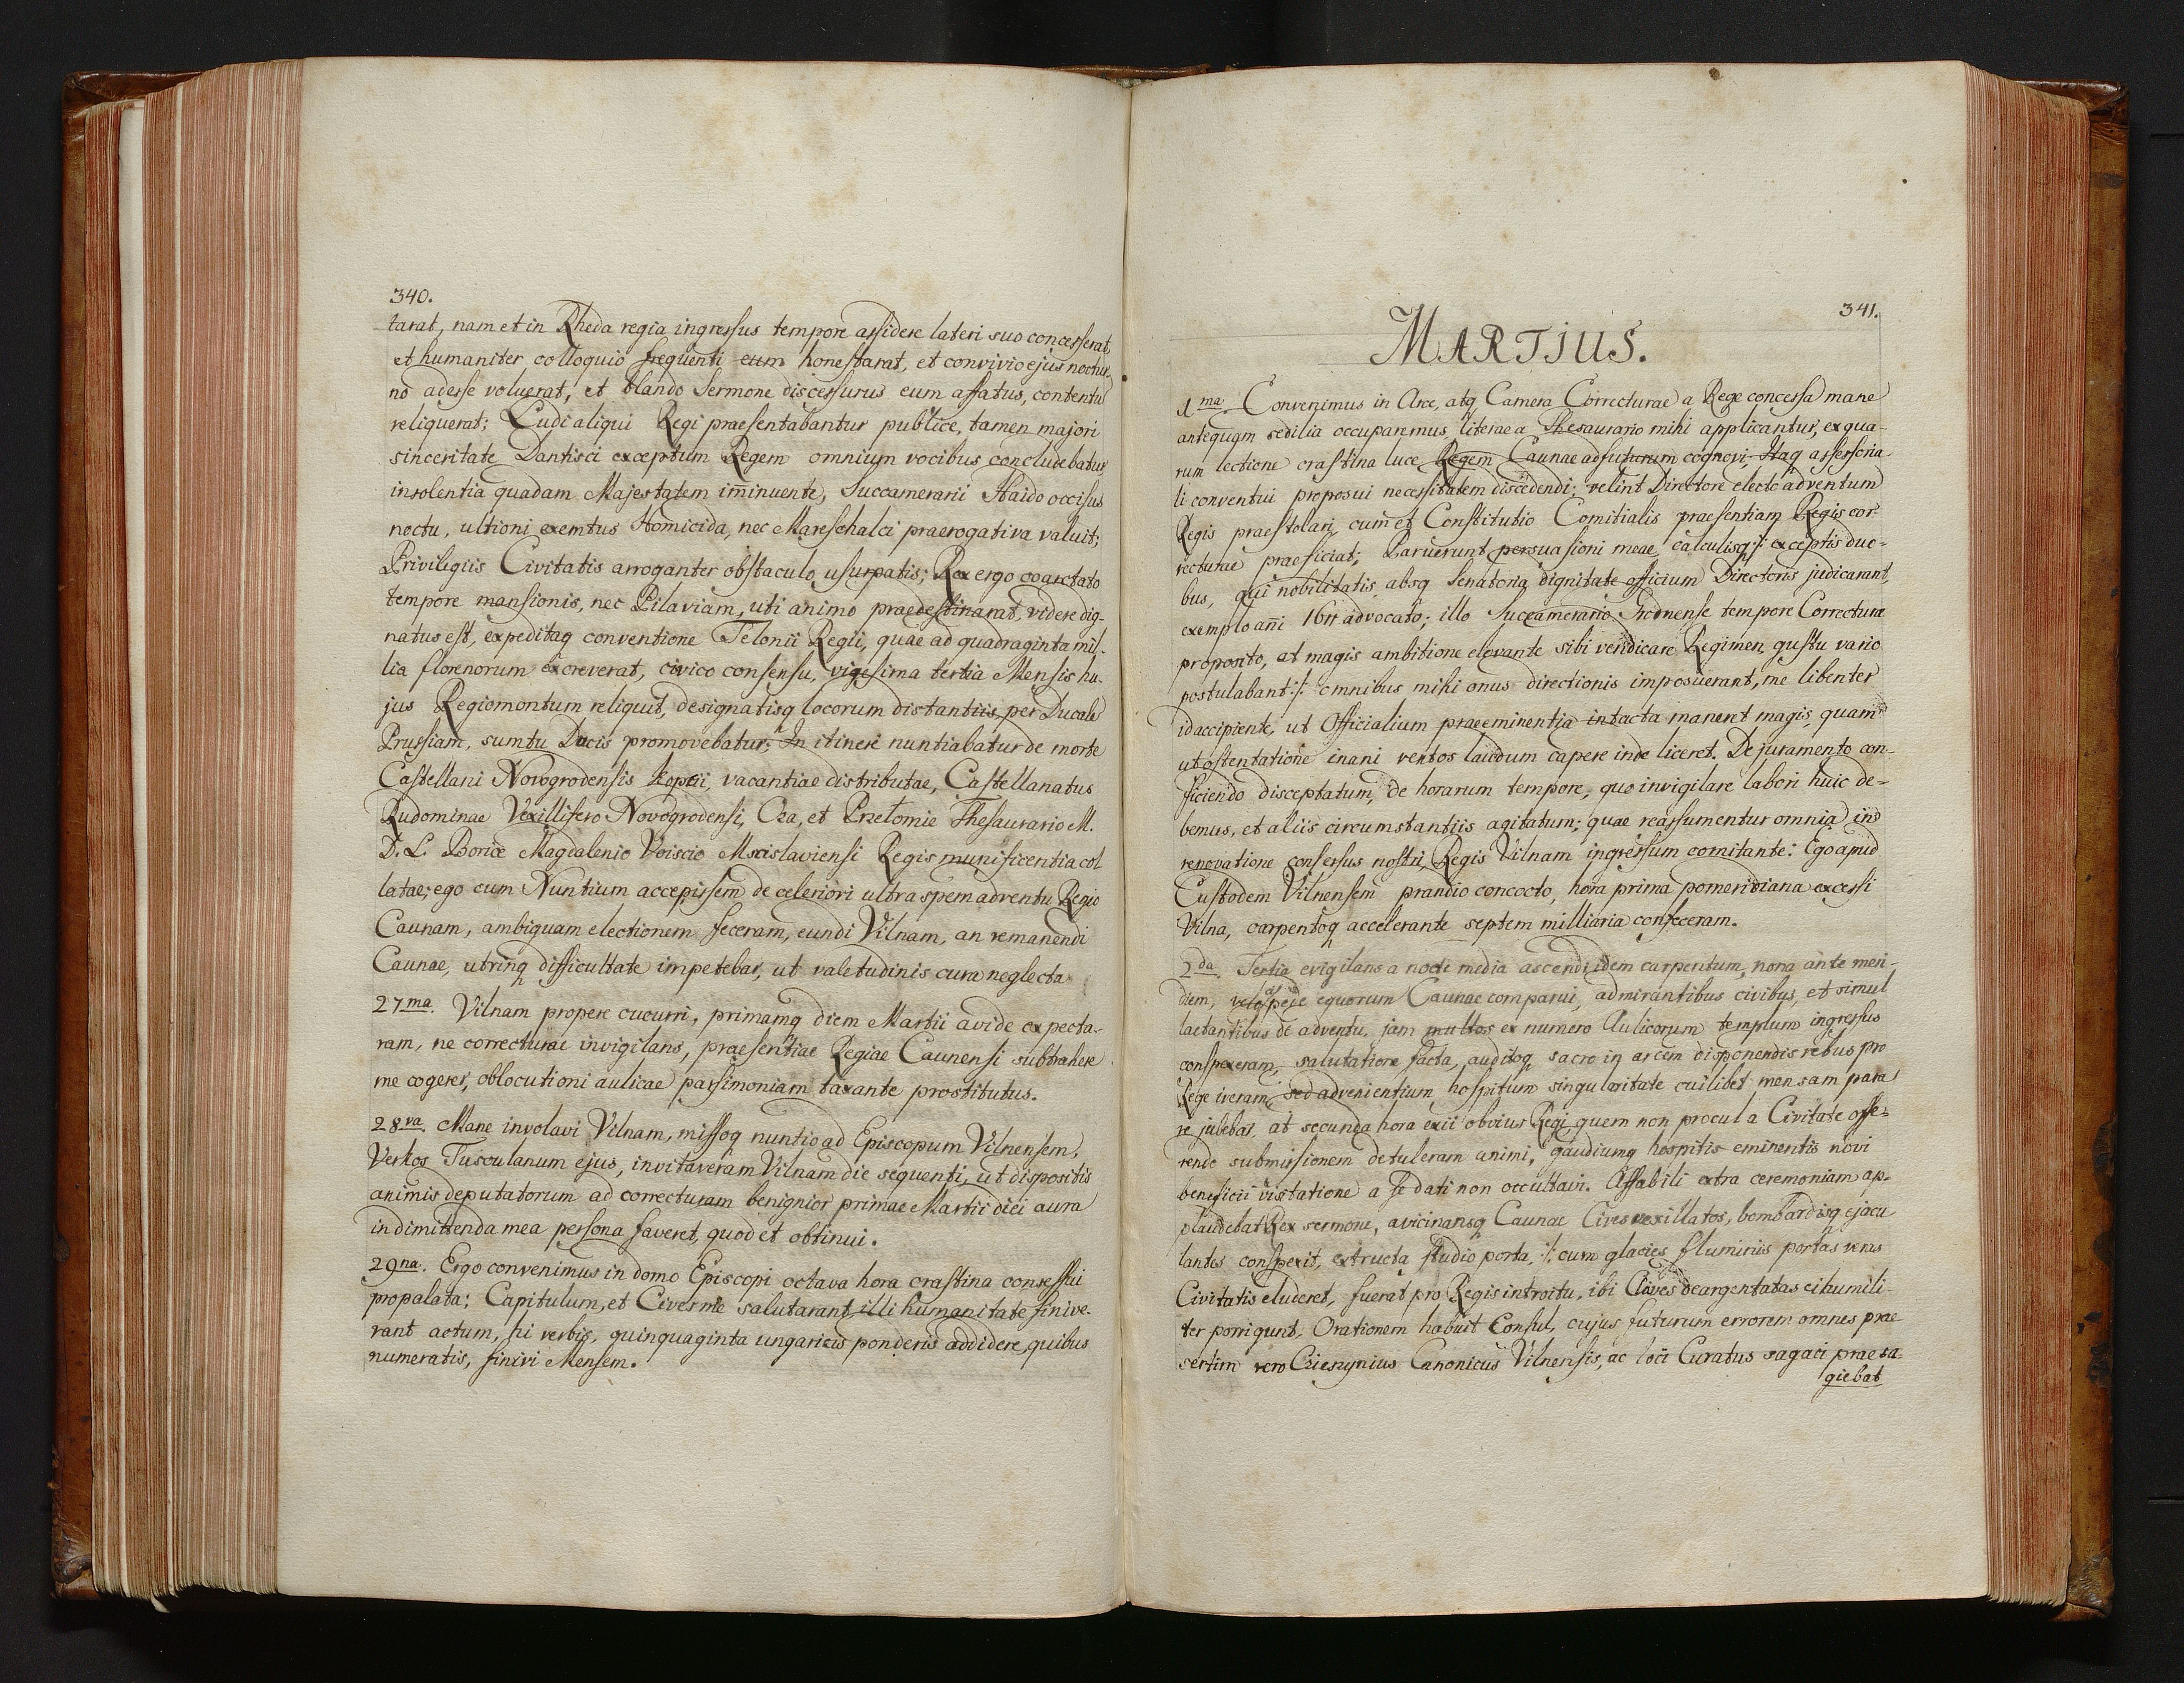 340.
tarat, nam et in Rheda regia ingressus tempore assidere lateri suo concesserat,
et humaniter colloquio frequenti eum honestarat, et convivio ejus noctur-
no adesse voluerat, et blando Sermone discessurus eum affatus, contentū
reliquerat; Ludi aliqui Regi praesentabantur publice, tamen majori
sinceritate Dantisci exceptum Regem omnium vocibus concludebatur
insolentia quadam Majestatem im̄inuente, Succamerarii Haido occisus
noctu, ultioni exemtus Homicida, nec Mareschalci praerogativa valuit;
Priviligiis Civitatis arroganter obstaculo usurpatis; Rex ergo coarctato
tempore mansionis, nec Pilaviam, uti animo praedestinarat, videre dig-
natus est, expeditaq conventione Telonii Regii, quae ad quadraginta mil-
lia florenorum excreverat, civico consensu, vigesima tertia Mensis hu-
jus Regiomontum reliquit, designatisq locorum distantiis per Ducale
Prussiam, sumtu Ducis promovebatur; In itinere nuntiabatur de morte
Castellani Novogrodensis Kopcii, vacantiae distributae, Castellanatus
Rudominae Vexillifero Novogrodensi, Oza, et Przełomie Thesaurario M.
D. L. Borcie Magdalenio Voiscio Mscislaviensi Regis munificentia col
latae; ego cum Nuntium accepissem de celeriori ultra spem adventu Regio
Caunam, ambiguam electionem feceram, eundi Vilnam, an remanendi
Caunae, utrinq difficultate impetebar, ut valetudinis cura neglecta
27ma. Vilnam propere cucurri, primamq diem Martii avide expecta-
ram, ne correcturae invigilans, praesentiae Regiae Caunensi subtrahere
me cogerer, oblocutioni aulicae parsimoniam taxante prostitutus.
28va. Mane involavi Vilnam, missoq nuntio ad Episcopum Vilnensem,
Verkos Tusculanum ejus, invitaveram Vilnam die sequenti, ut dispositis
animis deputatorum ad correcturam benignior primae Martii diei aura
in dimittenda mea persona faveret, quod et obtinui.
29na. Ergo convenimus in domo Episcopi octava hora crastina consessui
propalata; Capitulum, et Cives me salutarant, illi humanitate finive-
rant actum, hi verbis, quinquaginta ungaricis ponderis addidere, quibus
numeratis, finivi Mensem.
341.
MARTIUS.
1ma. Convenimus in Arce, atq Camera Correcturae a Rege concessa mane
antequam sedilia occuparemus, literae a Thesaurario mihi applicantur, ex qua-
rum lectione crastina luce Regem Caunae adfuturum cognovi, Itaq assessoria-
li conventui proposui necessitatem discedendi; velint Directore electo adventum
Regis praestolari, cum et Constitutio Comitialis praesentiam Regis cor-
recturae praeficiat; Paruerunt persuasioni meae, calculisq :/: exceptis duo-
bus, qui nobilitatis absq Senatoria dignitate officium Directoris judicarant,
exemplo an̄i 1611 advocato; illo Succamerario Grodnense tempore Correcturae
proposito, at magis ambitione elevante sibi vendicare Regimen, gustu vario
postulabant :/: omnibus mihi onus directionis imposuerant, me libenter
id accipiente, ut Officialium praeeminentia intacta maneret magis, quam
ut ostentatione inani ventos laudum capere inde liceret. De juramento con-
ficiendo disceptatum, de horarum tempore, quo invigilare labori huic de-
bemus, et aliis circumstantiis agitatum; quae reassumentur omnia in
renovatione consessus nostri, Regis Vilnam ingressum comitante: Ego apud
Custodem Vilnensem prandio concocto, hora prima pomeridiana excessi
Vilna, carpentoq accelerante septem milliaria confeceram.
2da. Tertia evigilans a nocte media ascendi idem carpentum, nona ante meri-
diem, veloci pede equorum Caunae comparui, admirantibus civibus, et simul
laetantibus de adventu, jam multos ex numero Aulicorum templum ingressus
conspexeram, salutatione facta, auditoq sacro in arcem disponendis rebus pro
Rege iveram, sed advenientium hospitum singularitate cuilibet mensam para
re jubebar, at secunda hora exii obvius Regi, quem non procul a Civitate offe-
rendo submissionem detuleram animi, gaudiumq hospitis eminentis novi
beneficii visitatione a se dati non occultavi. Affabili extra ceremoniam ap-
plaudebat Rex sermone, avicinansq Caunae Cives vexillatos, bombardisq ejacu
lantes conspexit, extructa studio porta, :/: cum glacies fluminis portas veras
Civitatis eluderet, fuerat pro Regis introitu, ibi Claves deargentatas ei humili-
ter porrigunt, Orationem habuit Consul, cujus futurum errorem omnes prae
sertim vero Ciesznius Canonicus Vilnensis, ac loci Curatus sagaci praesa-
giebat